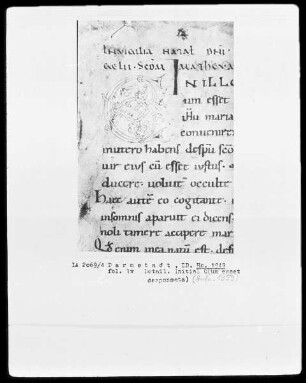 IN VIGILIA NATAL DNI
SCDM MATHEVM
IN ILLO
um esset
ihu maria
conuenirent
in utero habens
uir eius cu esset iustus
ducere uoluit occulte
Haec aute eo cogitante
in somnis aparuit ei dicens
noli timere accipere mar
Q enim in ea natum est de
1A 2069/6 Darmstadt, LB, Hs. 1949
fol. 1v Detail. Initial C(um esset
desponsata)